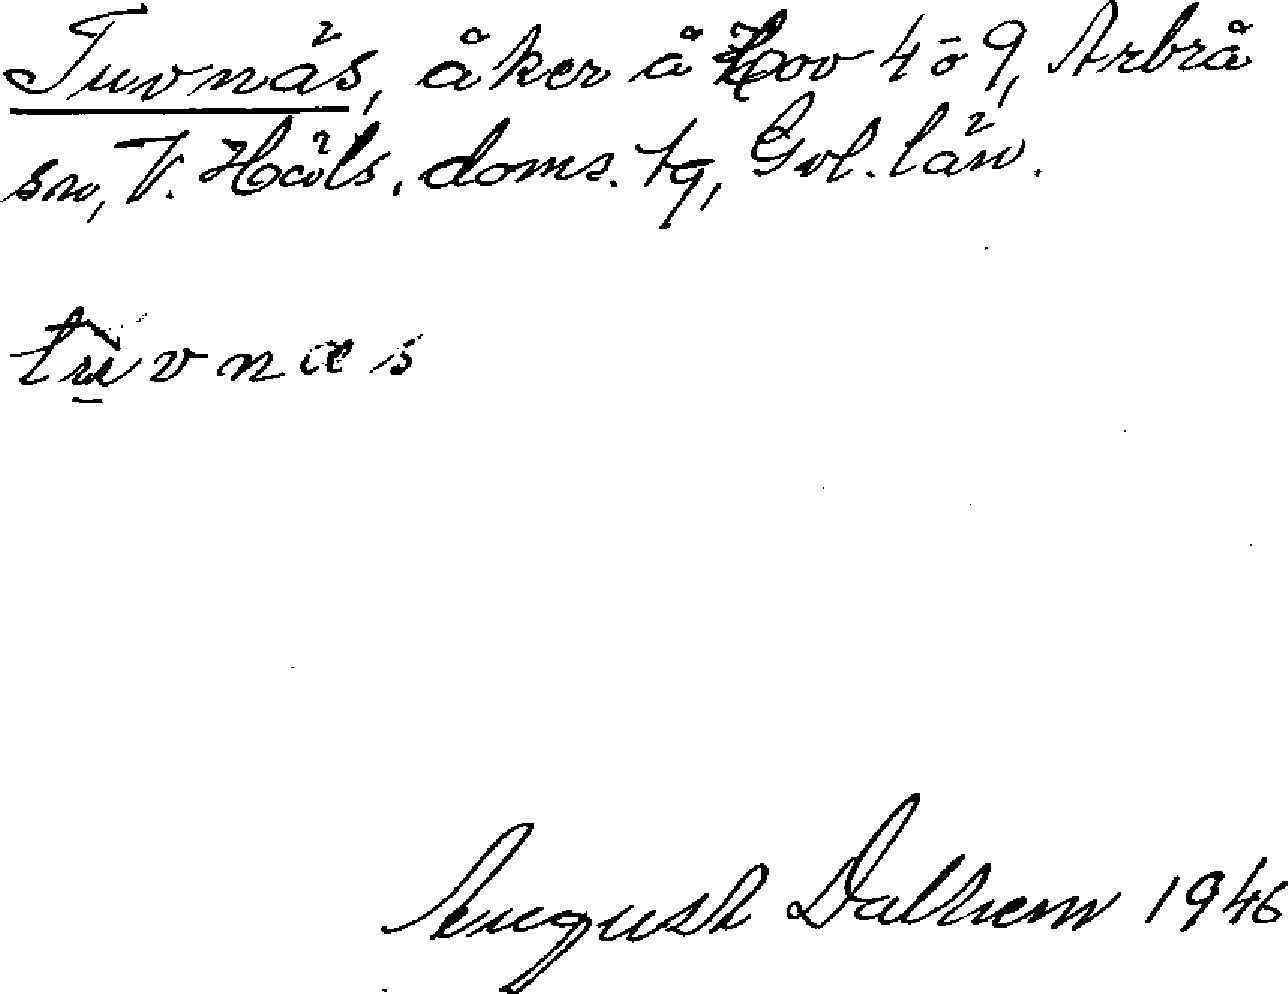 Tuvnäs, åker å Hov 4 o 9, Arbrå
sn, V. Häls. doms. tg, Gvl. län.
tùvnæs
August Dalhem 1946